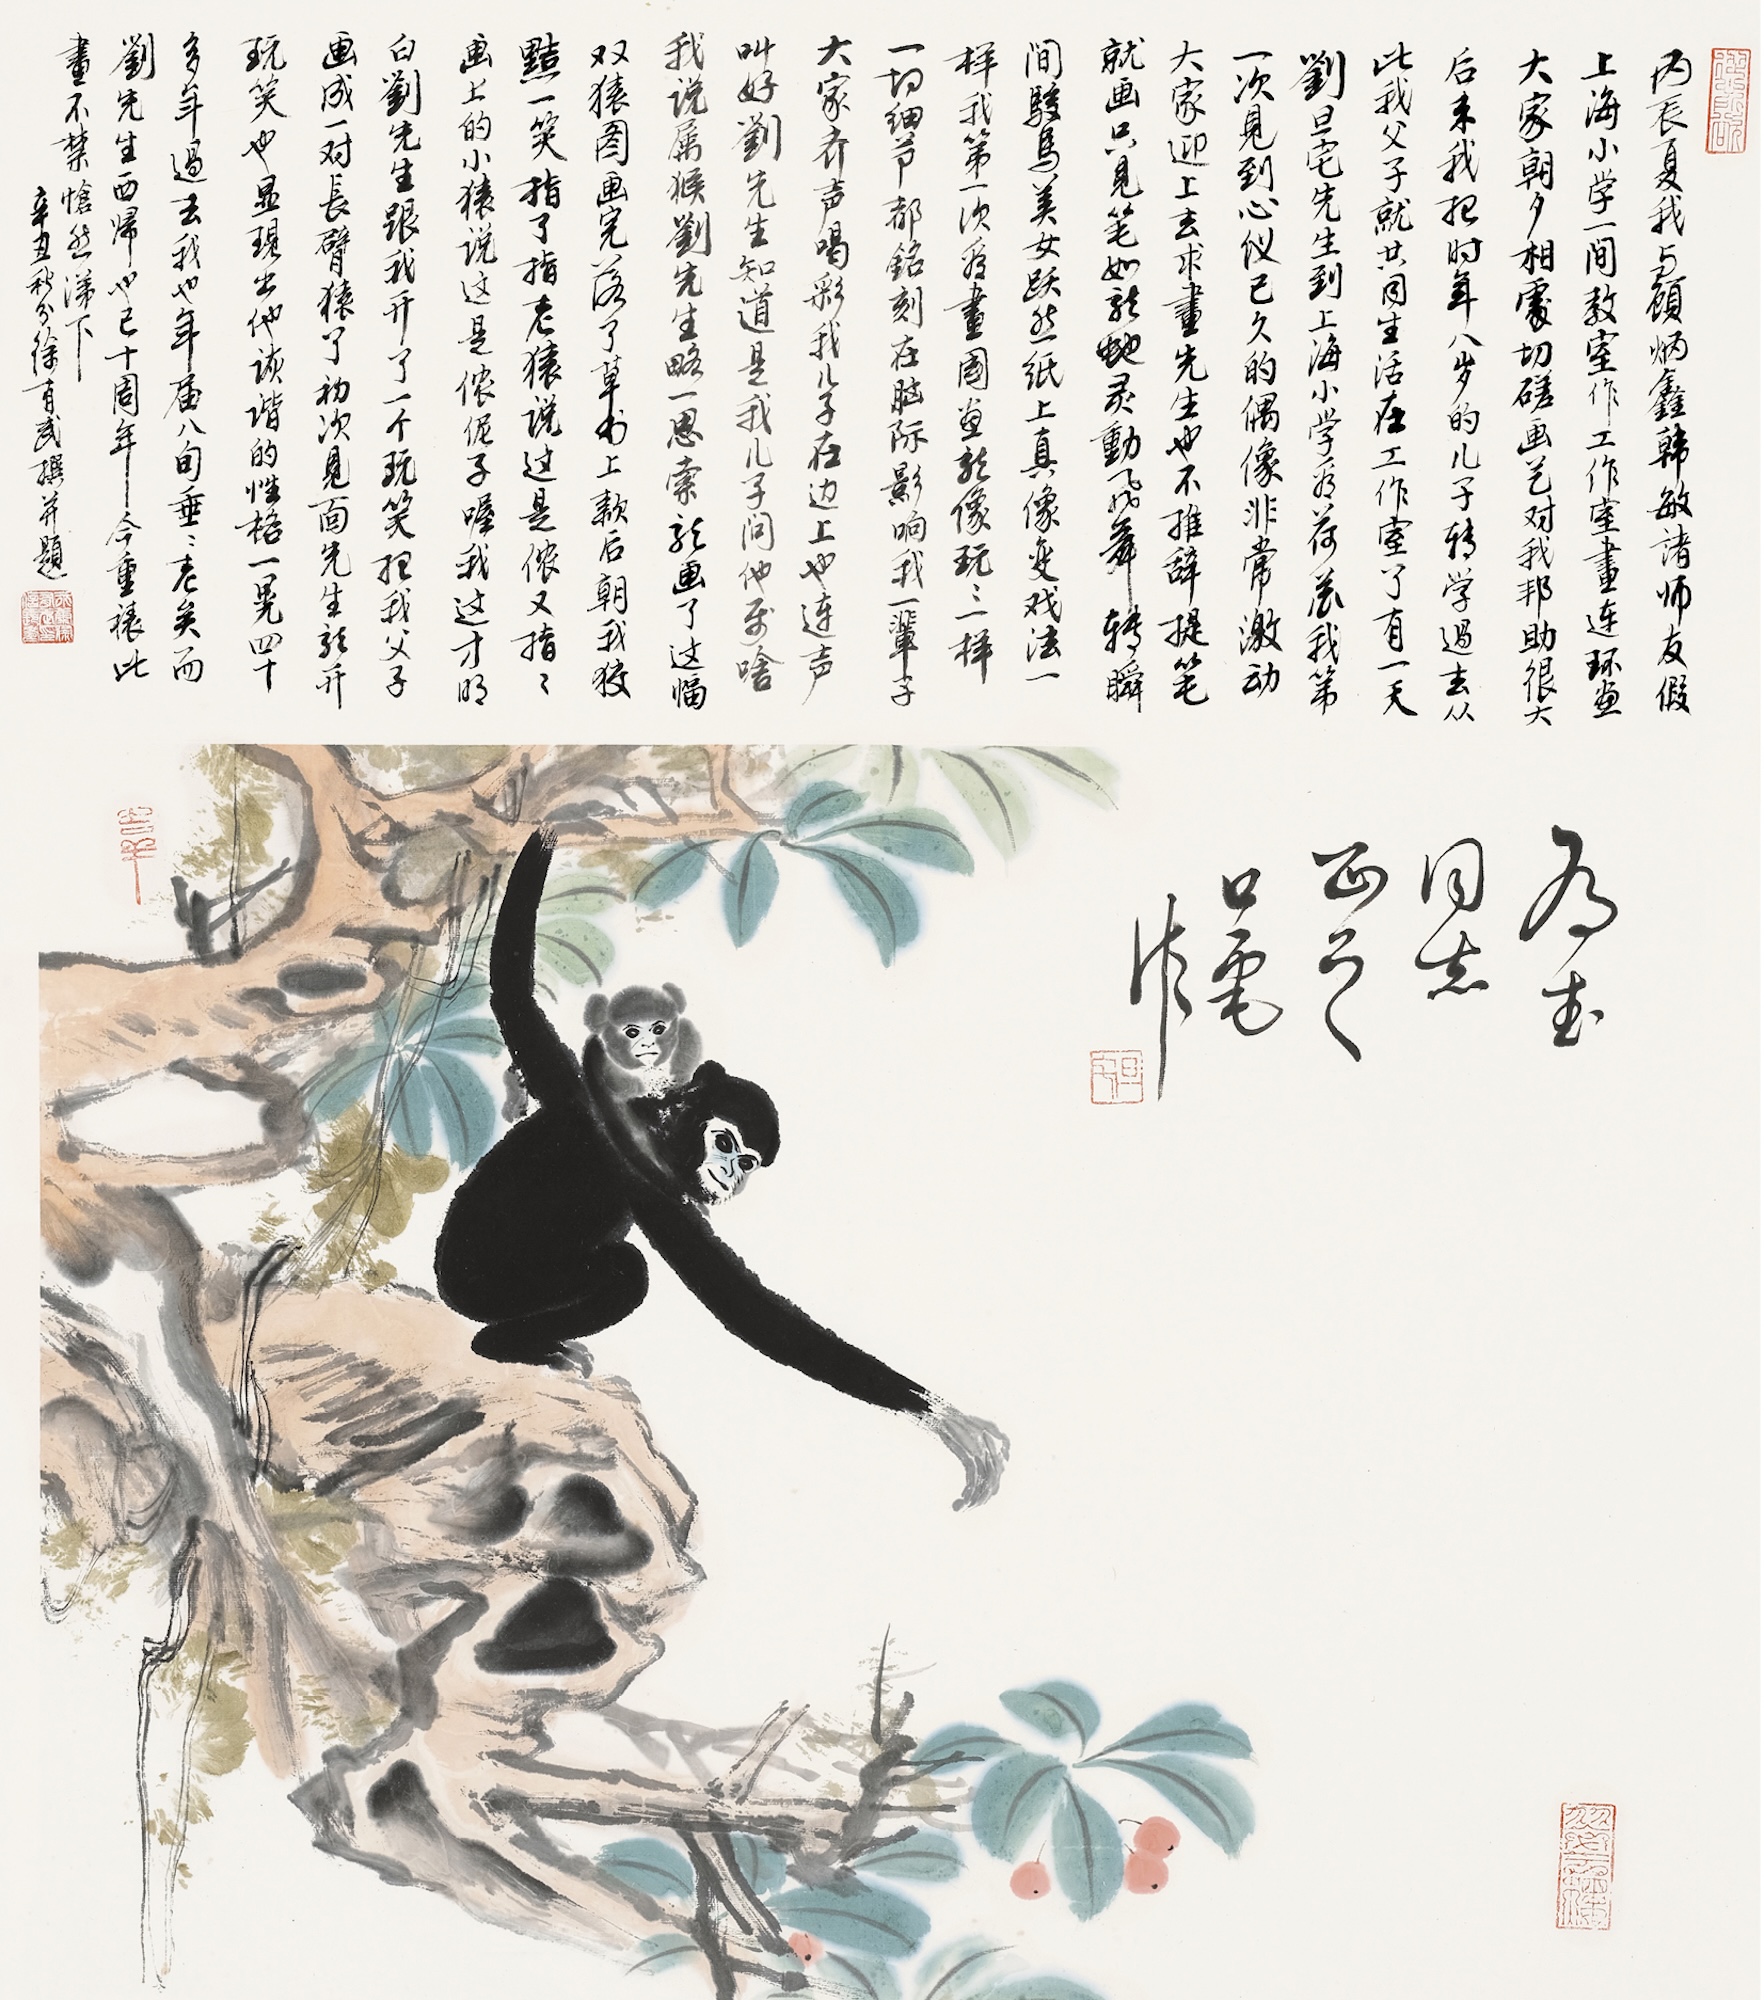 丙辰夏我与顾炳鑫韩敏诸师友假
上海小学一间教室作工作室畫连环画
大家朝夕相處切磋画艺对我邦助很大
后来我把时年八岁的儿子转学過去从
此我父子就共同生活在工作室了有一天
劉旦宅先生到上海小学看荷花我第
一次見到心仪已久的偶像非常激动
大家迎上去求畫先生也不推辞提笔
就画只見笔如龙虵灵動飛舞转瞬
间駿馬美女跃然纸上真像变戏法一
样我第一次看畫國画就像玩玩一样
一切细节都銘刻在脑际影响我一輩子
大家齐声喝彩我儿子在边上也连声
叫好劉先生知道是我儿子问他属啥
我说属猴劉先生略一思索就画了这幅
双猿图画完落了草书上款后朝我狡
黠一笑指了指老猿说这是侬又指指
画上的小猿说这是侬伲子喔我这才明
白劉先生跟我开了一个玩笑把我父子
画成一对長臂猿了初次見面先生就开
玩笑也显現出他诙谐的性格一晃四十
多年過去我也年届八旬垂垂老矣而
劉先生西归也已十周年今重裱此
畫不禁愴然涕下
辛丑秋分徐有武撰并題
有武
同志
正之
旦宅